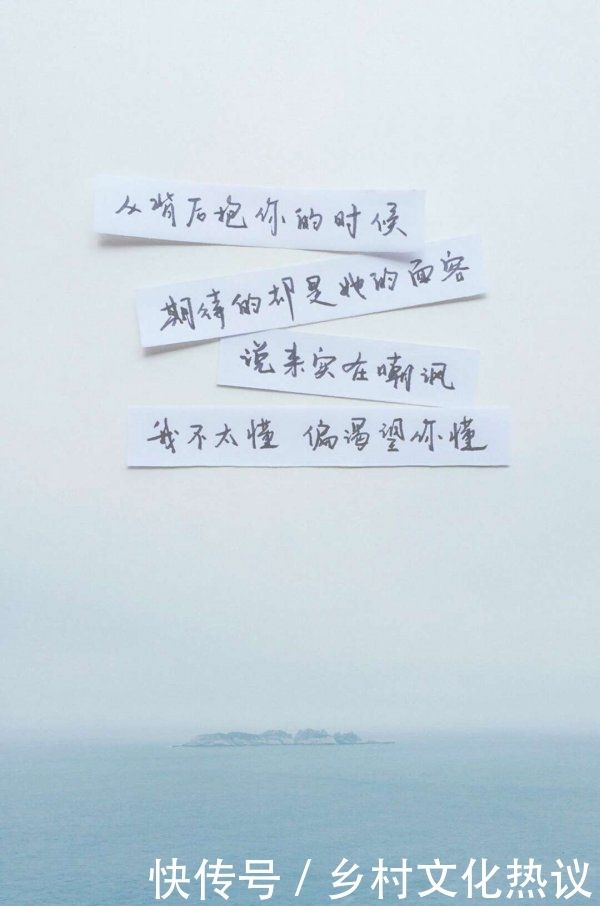 从背后抱你的时候
期待的却是她的面容
说来实在嘲讽
我不太懂 偏渴望你懂
快传号 / 乡村文化热议